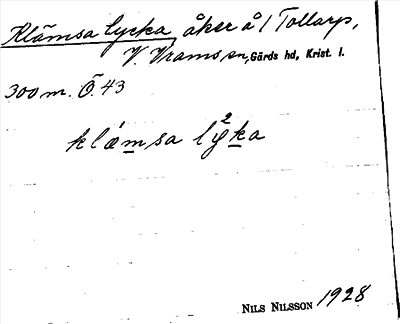 Klämsa lycka åker å 1 Tollarp,
V. Vrams sn, Gärds hd, Krist. l.
300 m. Ö. 43
klæmsa lyka
NILS NILSSON 1928